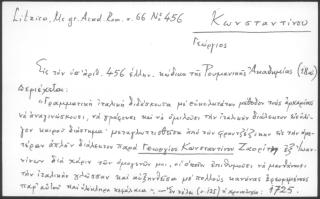 Litzica, Ms gr. Acad. Rom. p. 66 No 456
Κωνσταντίνου
Γεώργιος
Εἰς τὸν ὑπ' ἀριθ. 456 ἑλλην. κώδικα τῆς Ρουμανικῆς Ἀκαδημίας (18ου)
περιέχεται:
«Γραμματικὴ ἰταλικὴ διδάσκουσα μὲ εὐκολωτάτην μέθοδον τοὺς ἀρχαρίους
νὰ ἀναγινώσκουσι, νὰ γράφουσι καὶ νὰ ὁμιλοῦσι τὴν ἰταλικὴν διάλεκτον εἰς ὀλί-
γου καιροῦ διάστημα. μεταγλωττισθεῖσα ἀπὸ τὴν φραντζέζικην εἰς τὴν ἡμε-
τέραν ἁπλῆν διάλεκτον παρὰ Γεωργίου Κωνσταντίνου ἐξ Ἰωαν-
νίνων διὰ χάριν τῶν ὁμογενῶν μου, οἱ ὁποῖοι ἐπιθυμοῦσι νὰ μανθάνουσι
τὴν ἰταλικὴν γλῶσσαν καὶ αὐξηνθεῖσα μὲ πολλοὺς κανόνας
παρ' αὐτοῦ καὶ ὁλόκληρα κεφάλαια». (σ. 125) 1725.